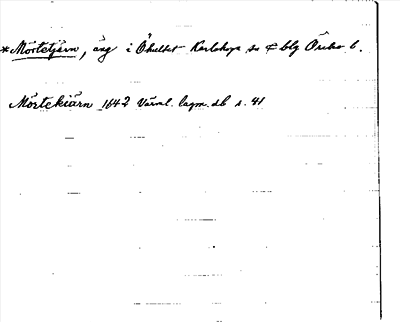 *Mörtetjärn, äng i Ökultet Karlskoga sn & blg Örebro l.
Mörtekiärn 1642 Värml. lagm. db s. 41